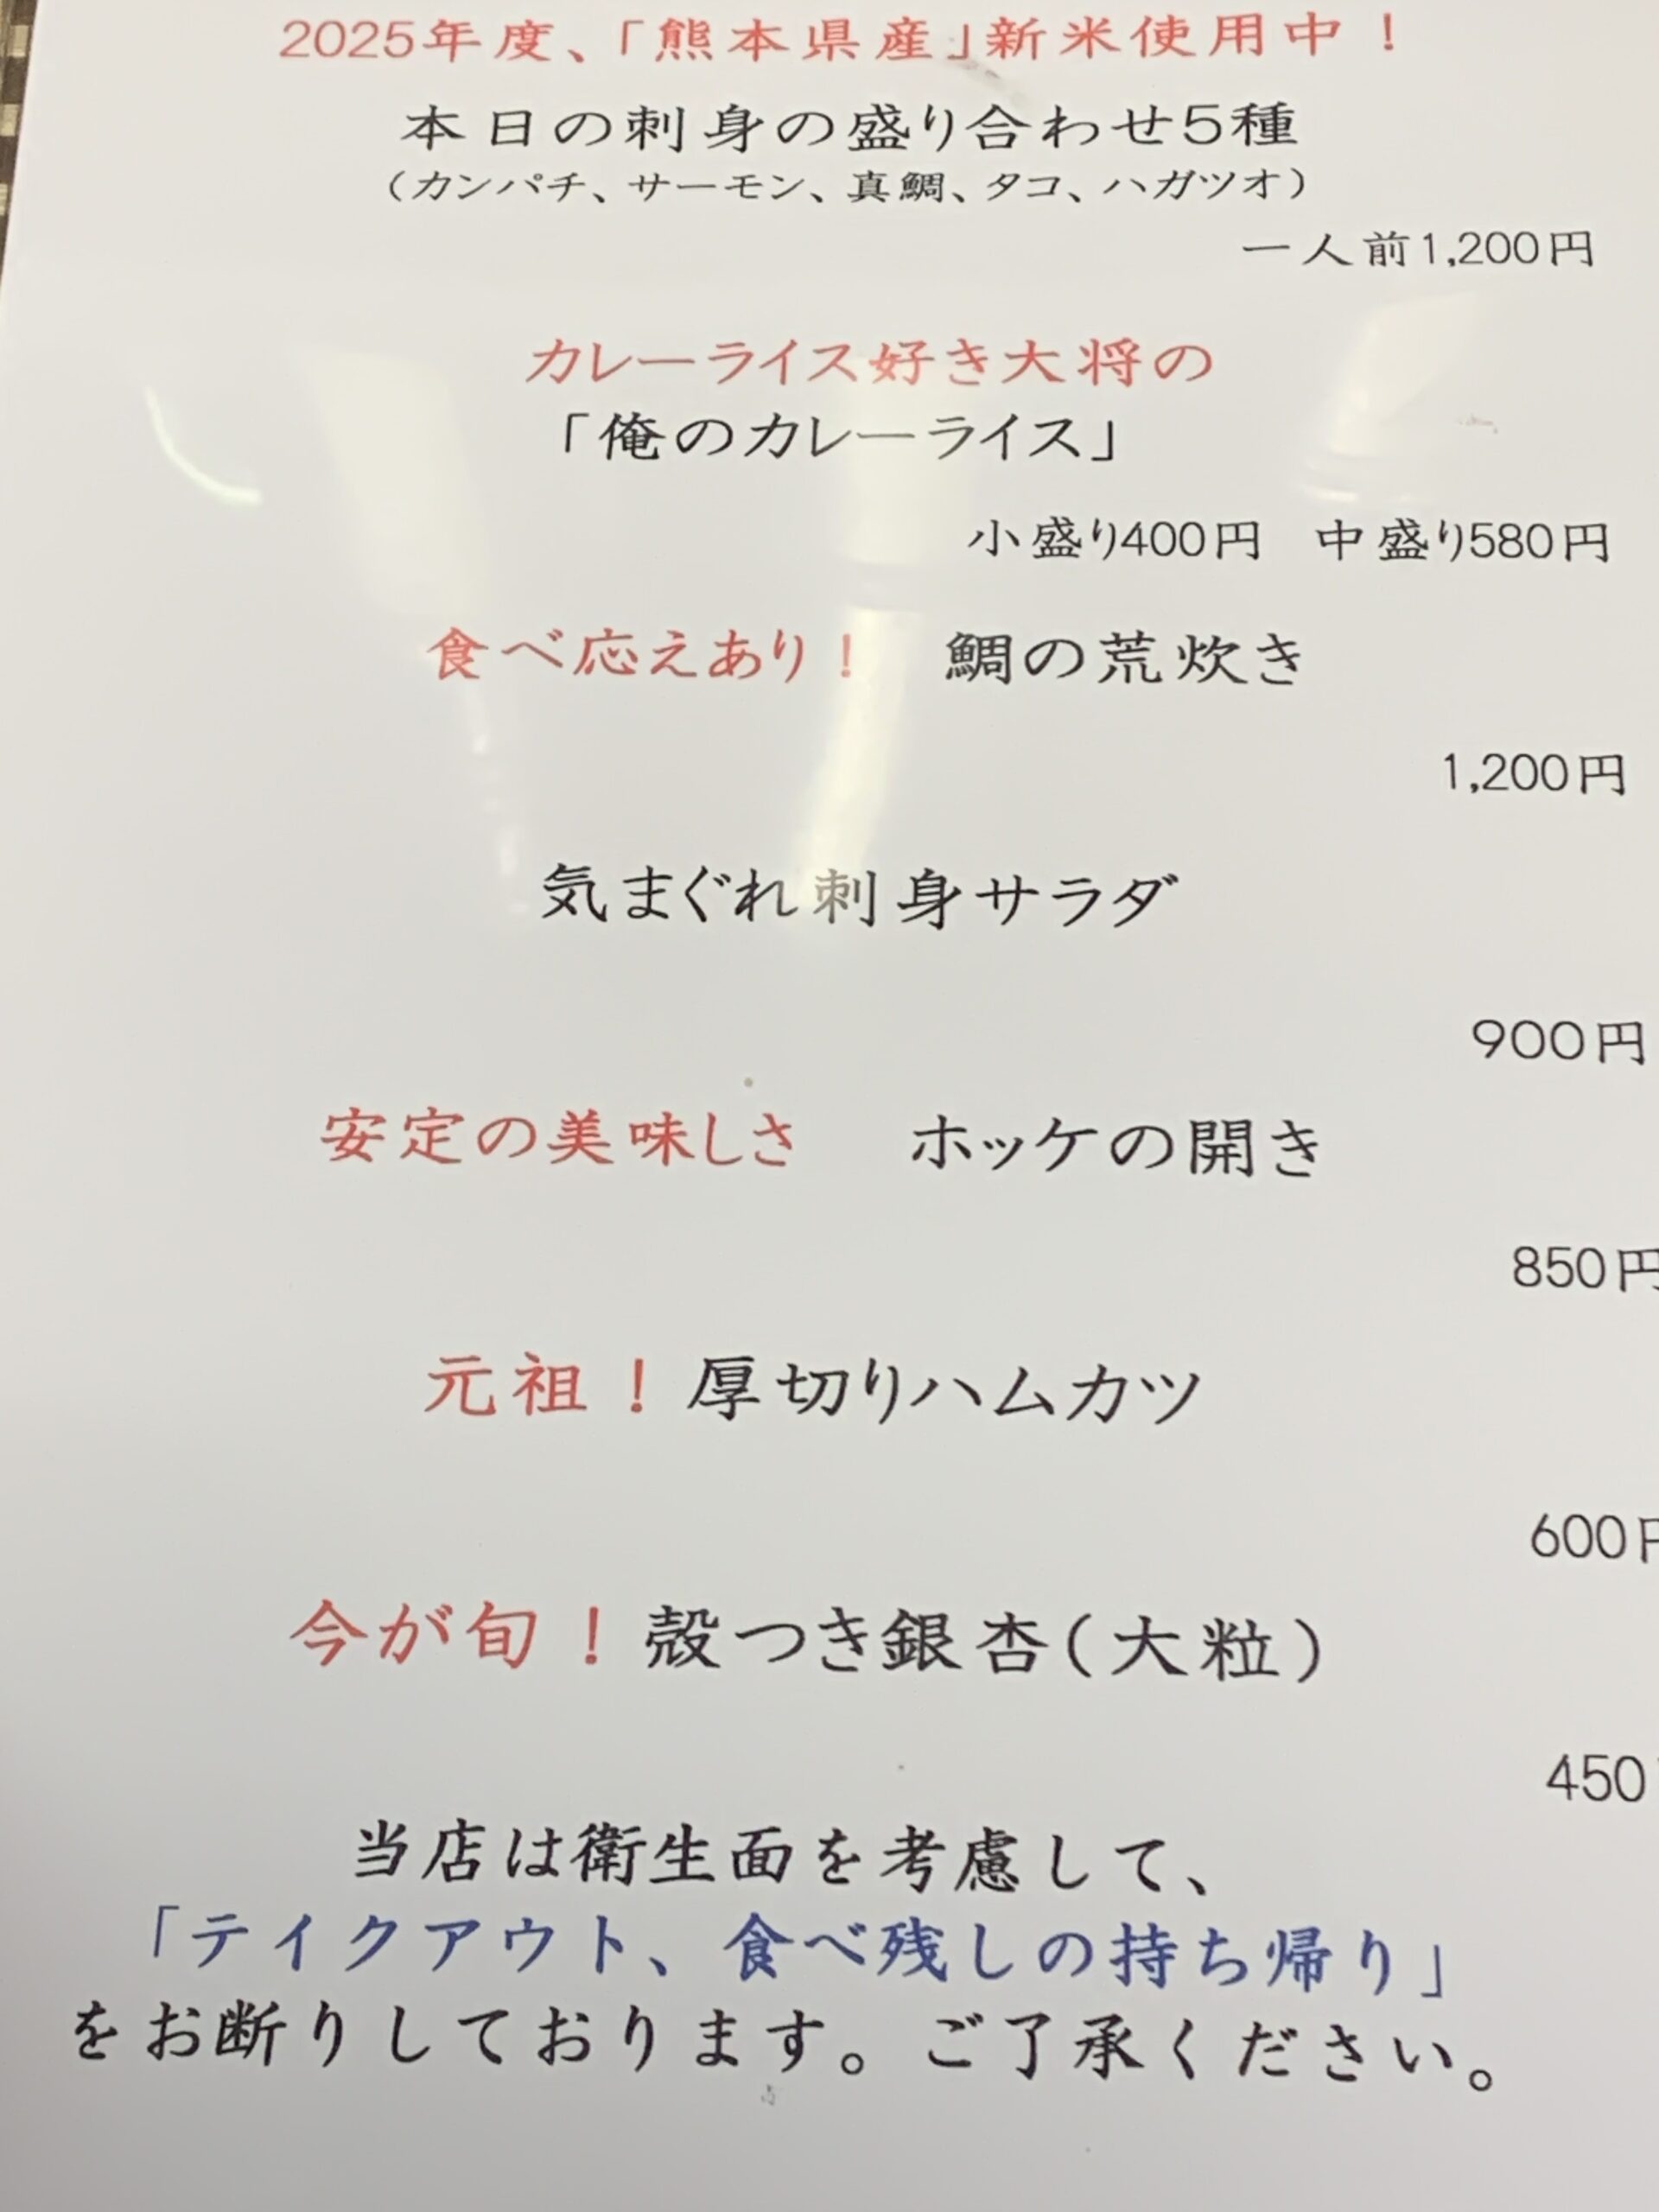 2025年度、「熊本県産」新米使用中！
本日の刺身の盛り合わせ5種
（カンパチ、サーモン、真鯛、タコ、ハガツオ）
一人前1,200円
カレーライス好き大将の
「俺のカレーライス」
小盛り400円　中盛り580円
食べ応えあり！　鯛の荒炊き
1,200円
気まぐれ刺身サラダ
900円
安定の美味しさ　ホッケの開き
850円
元祖！厚切りハムカツ
600円
今が旬！殻つき銀杏（大粒）
450
当店は衛生面を考慮して、
「テイクアウト、食べ残しの持ち帰り」
をお断りしております。ご了承ください。